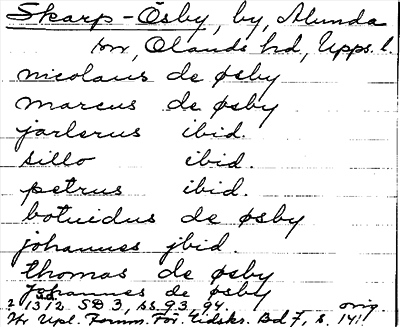 Skarp-Ösby, by, Alunda
sn, Olands hd, Upps. l.
nicolaus de øsby
marcus de øsby
jarlerus ibid.
sillo ibid.
petrus ibid.
botuidus de øsby
johannes jbid
thomas de øsby
johannes de øsby
1312 SD 3, ss. 93, 94. orig
Upl. Fornm. För. tidskr. Bd 7, s. 141.